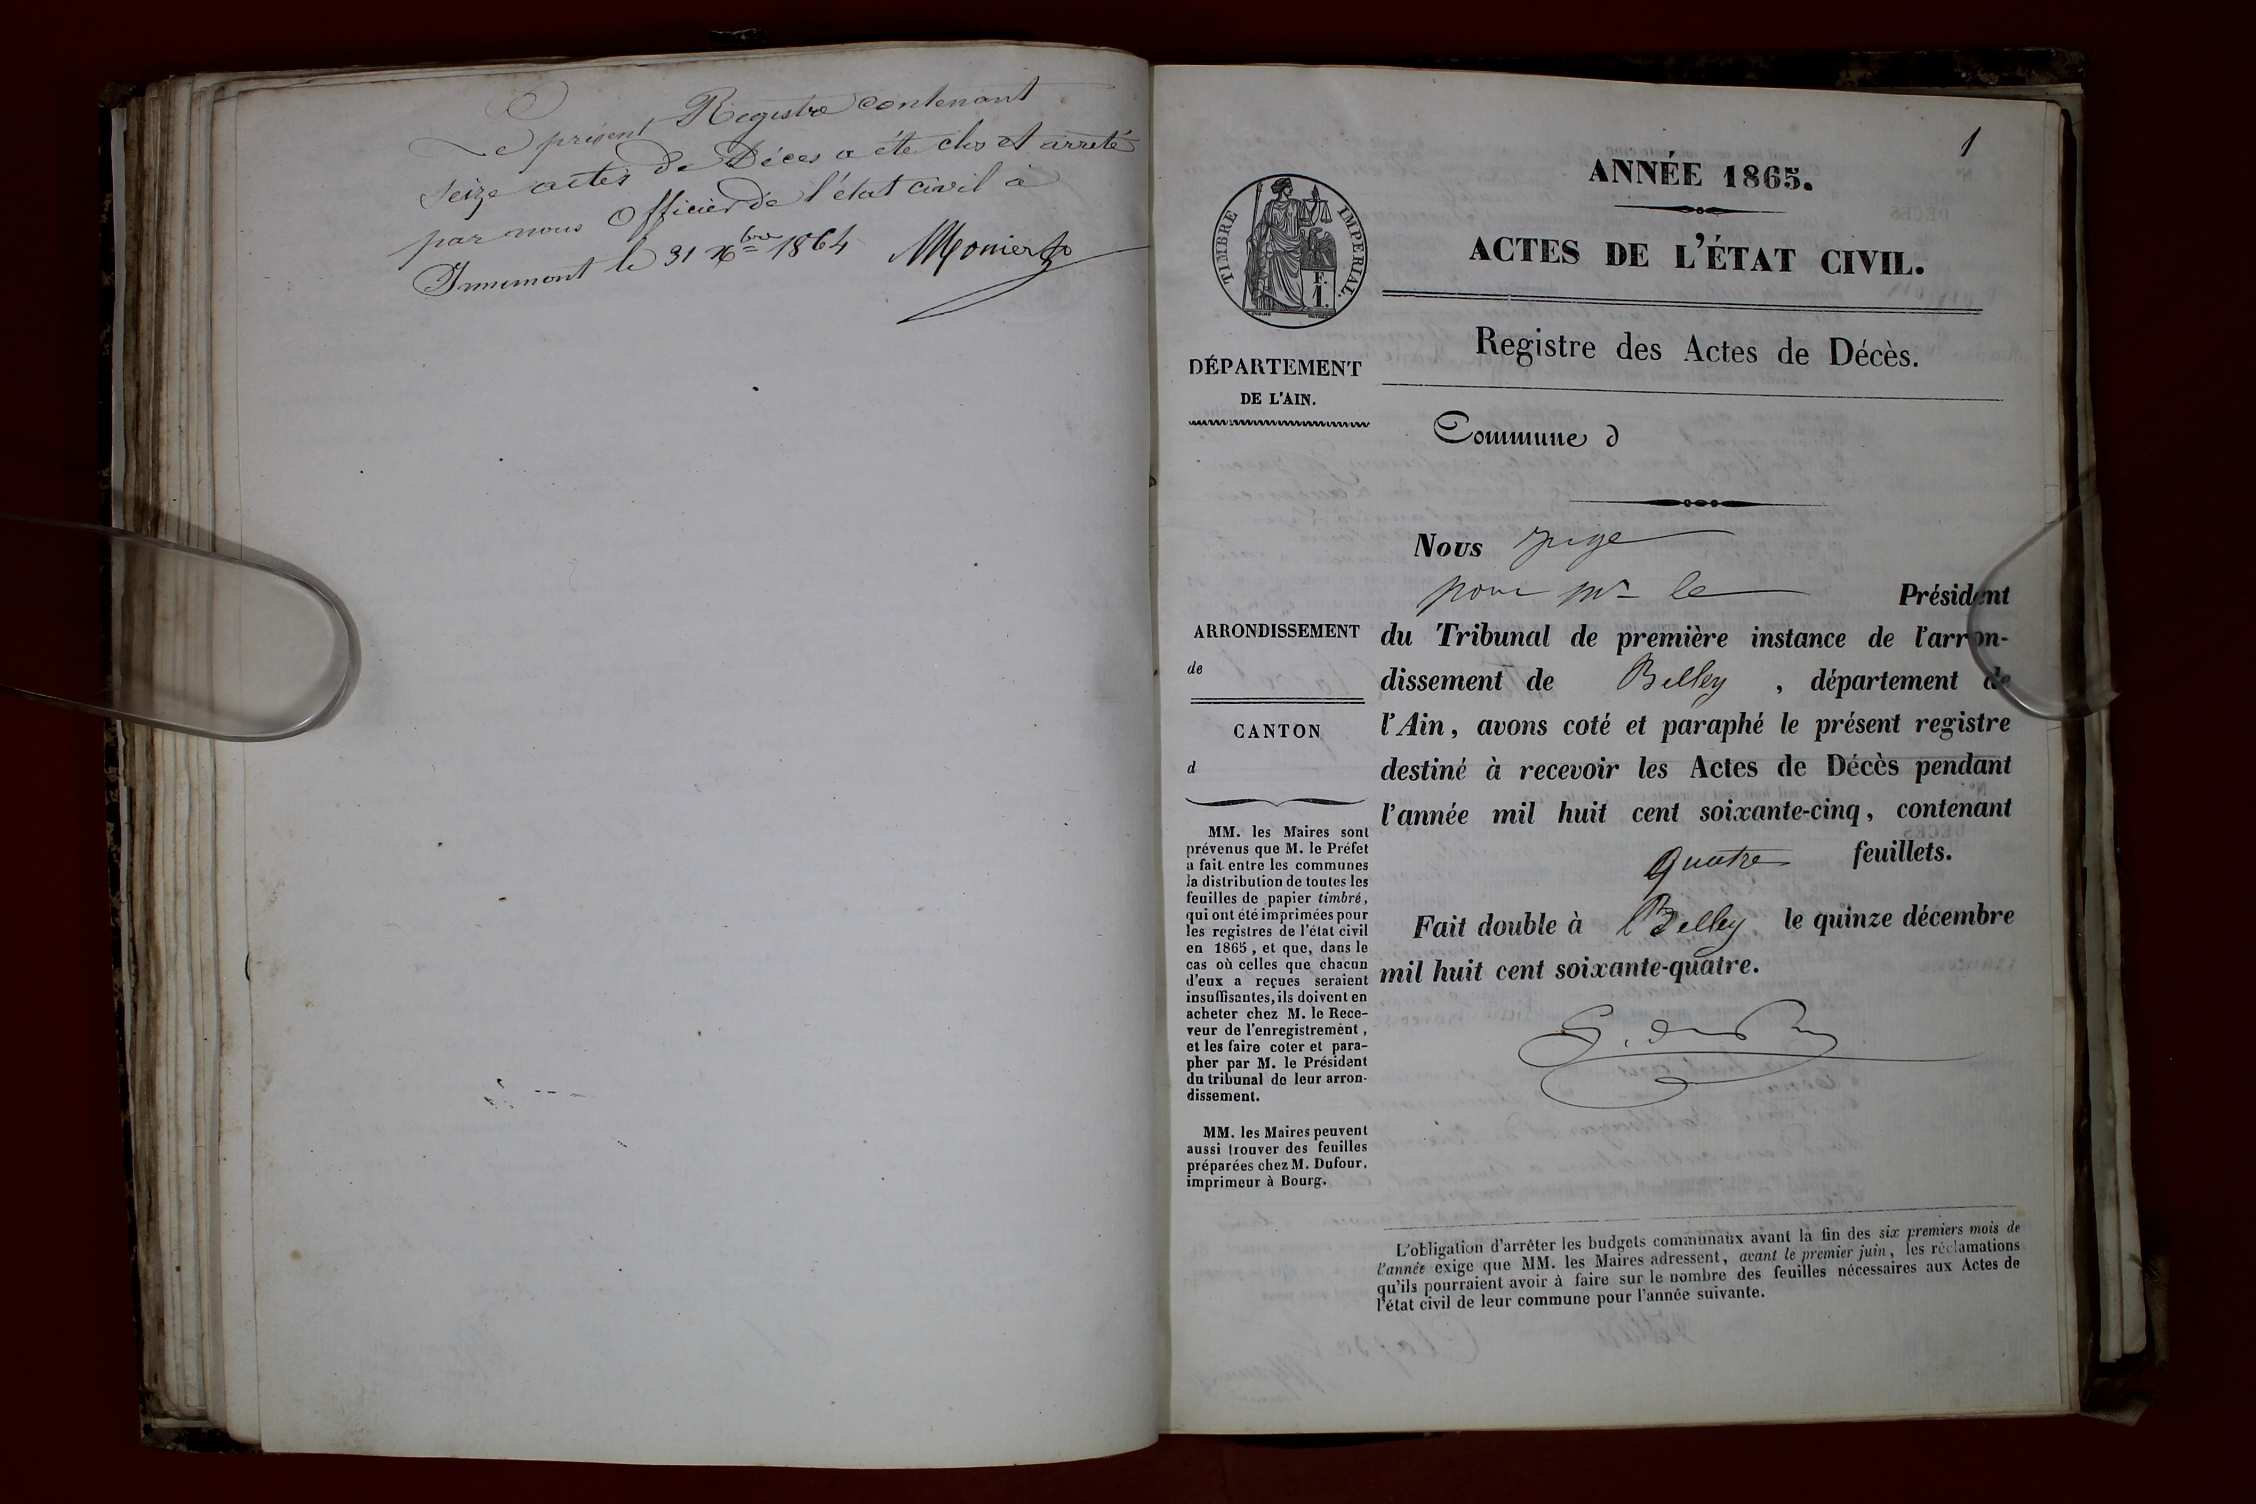 Le présent Registre contenant
seize actes de Décès a été clos et arrêté
par nous Officier de l'état civil à
Innimont le 31 Xbre 1864 Monier
1
ANNÉE 1865.
ACTES DE L'ÉTAT CIVIL.
TIMBRE IMPERIAL.
F.
1.
Registre des Actes de Décès.
DÉPARTEMENT
DE L'AIN.
Commune d
Nous juge
pour mr le Président
du Tribunal de première instance de l'arron-
dissement de Belley, département de
l'Ain, avons coté et paraphé le présent registre
destiné à recevoir les Actes de Décès pendant
l'année mil huit cent soixante-cinq, contenant
quatre feuillets.
Fait double à Belley le quinze décembre
mil huit cent soixante-quatre.
ARRONDISSEMENT
de
CANTON
d
MM. les Maires sont
prévenus que M. le Préfet
a fait entre les communes
la distribution de toutes les
feuilles de papier timbré,
qui ont été imprimées pour
les registres de l'état civil
en 1865, et que, dans le
cas où celles que chacun
d'eux a reçues seraient
insuffisantes, ils doivent en
acheter chez M. le Rece-
veur de l'enregistrement,
et les faire coter et para-
pher par M. le Président
du tribunal de leur arron-
dissement.
MM. les Maires peuvent
aussi trouver des feuilles
préparées chez M. Dufour,
imprimeur à Bourg.
L'obligation d'arrêter les budgets communaux avant la fin des six premiers mois de
l'année exige que MM. les Maires adressent, avant le premier juin, les réclamations
qu'ils pourraient avoir à faire sur le nombre des feuilles nécessaires aux Actes de
l'état civil de leur commune pour l'année suivante.